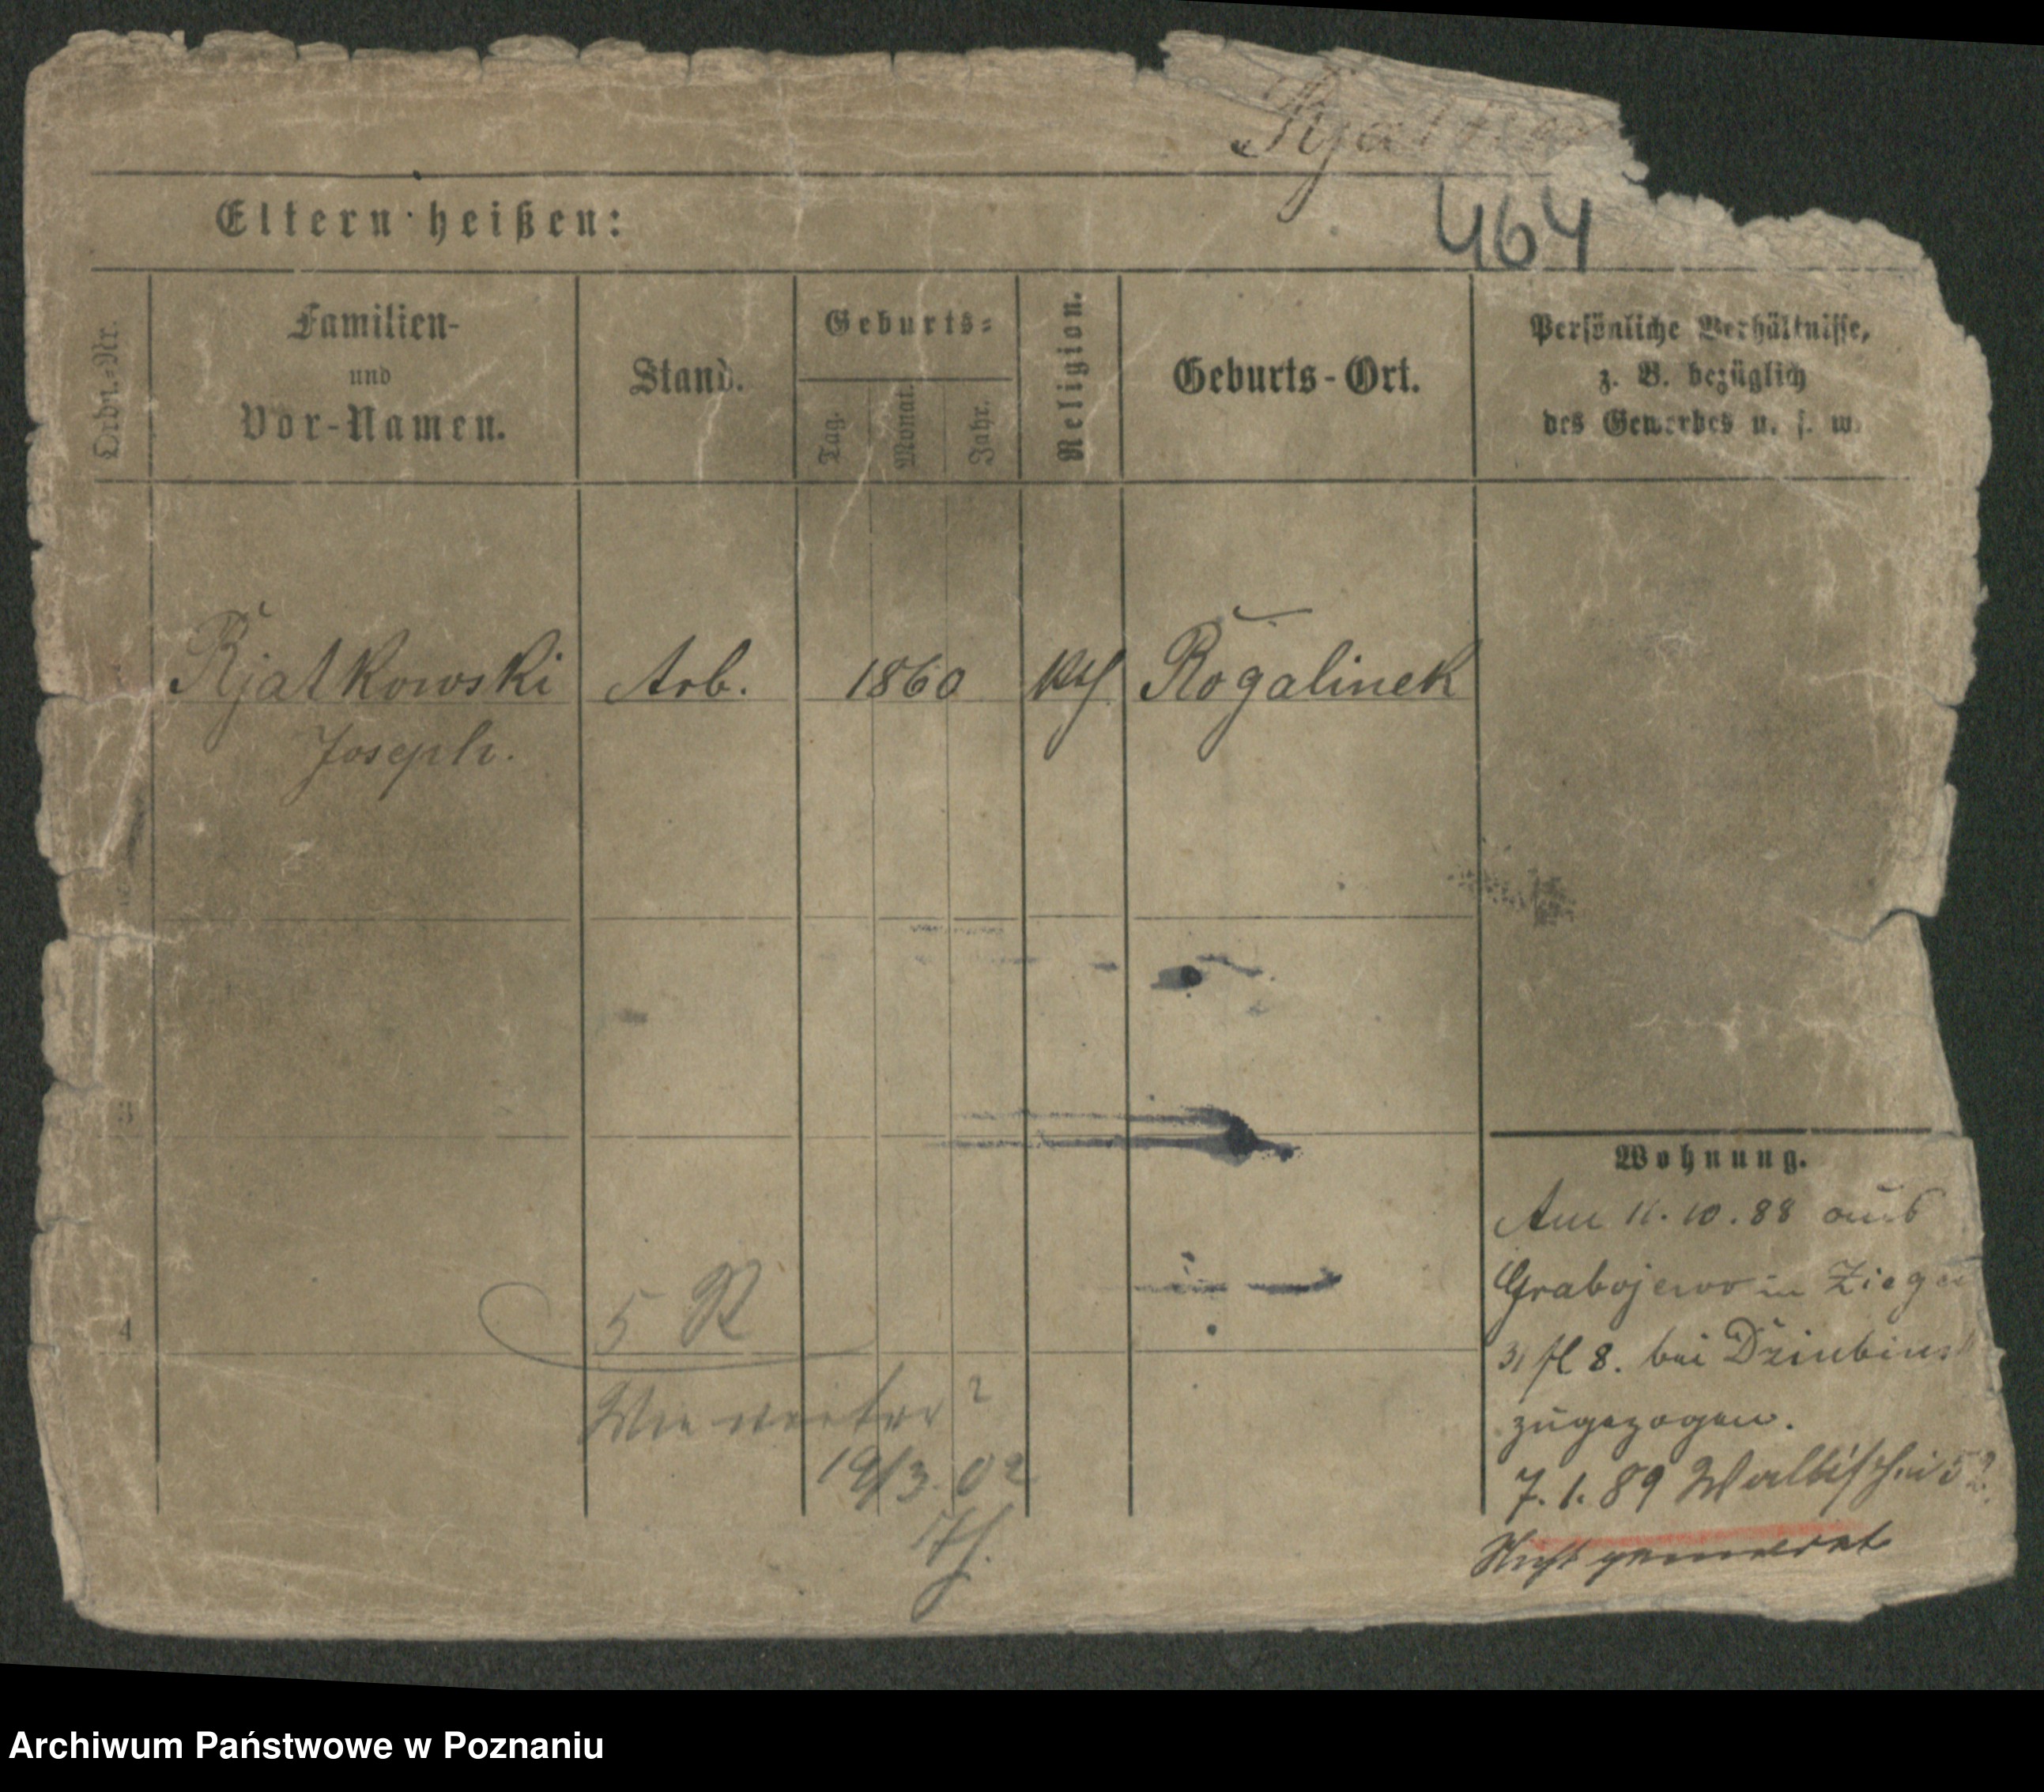 464
Eltern heißen:
Ordn.-Nr.
Familien-
und
Vor-Namen.
Stand.
Geburts-
Tag.
Monat.
Jahr.
Religion.
Geburts-Ort.
Persönliche Verhältnisse,
z. B. bezüglich
des Gewerbes u. s. w.
Rjatkowski Arb. 1860 kth Rogalinek
Joseph.
3
4
Wohnung.
Am 11.10.88 aus
Grabojewo in
8. bei
zugezogen.
7.1.89 Wallischei
Nicht gemeldet
5 R
Wie weiter?
19/3.02
Archiwum Państwowe w Poznaniu